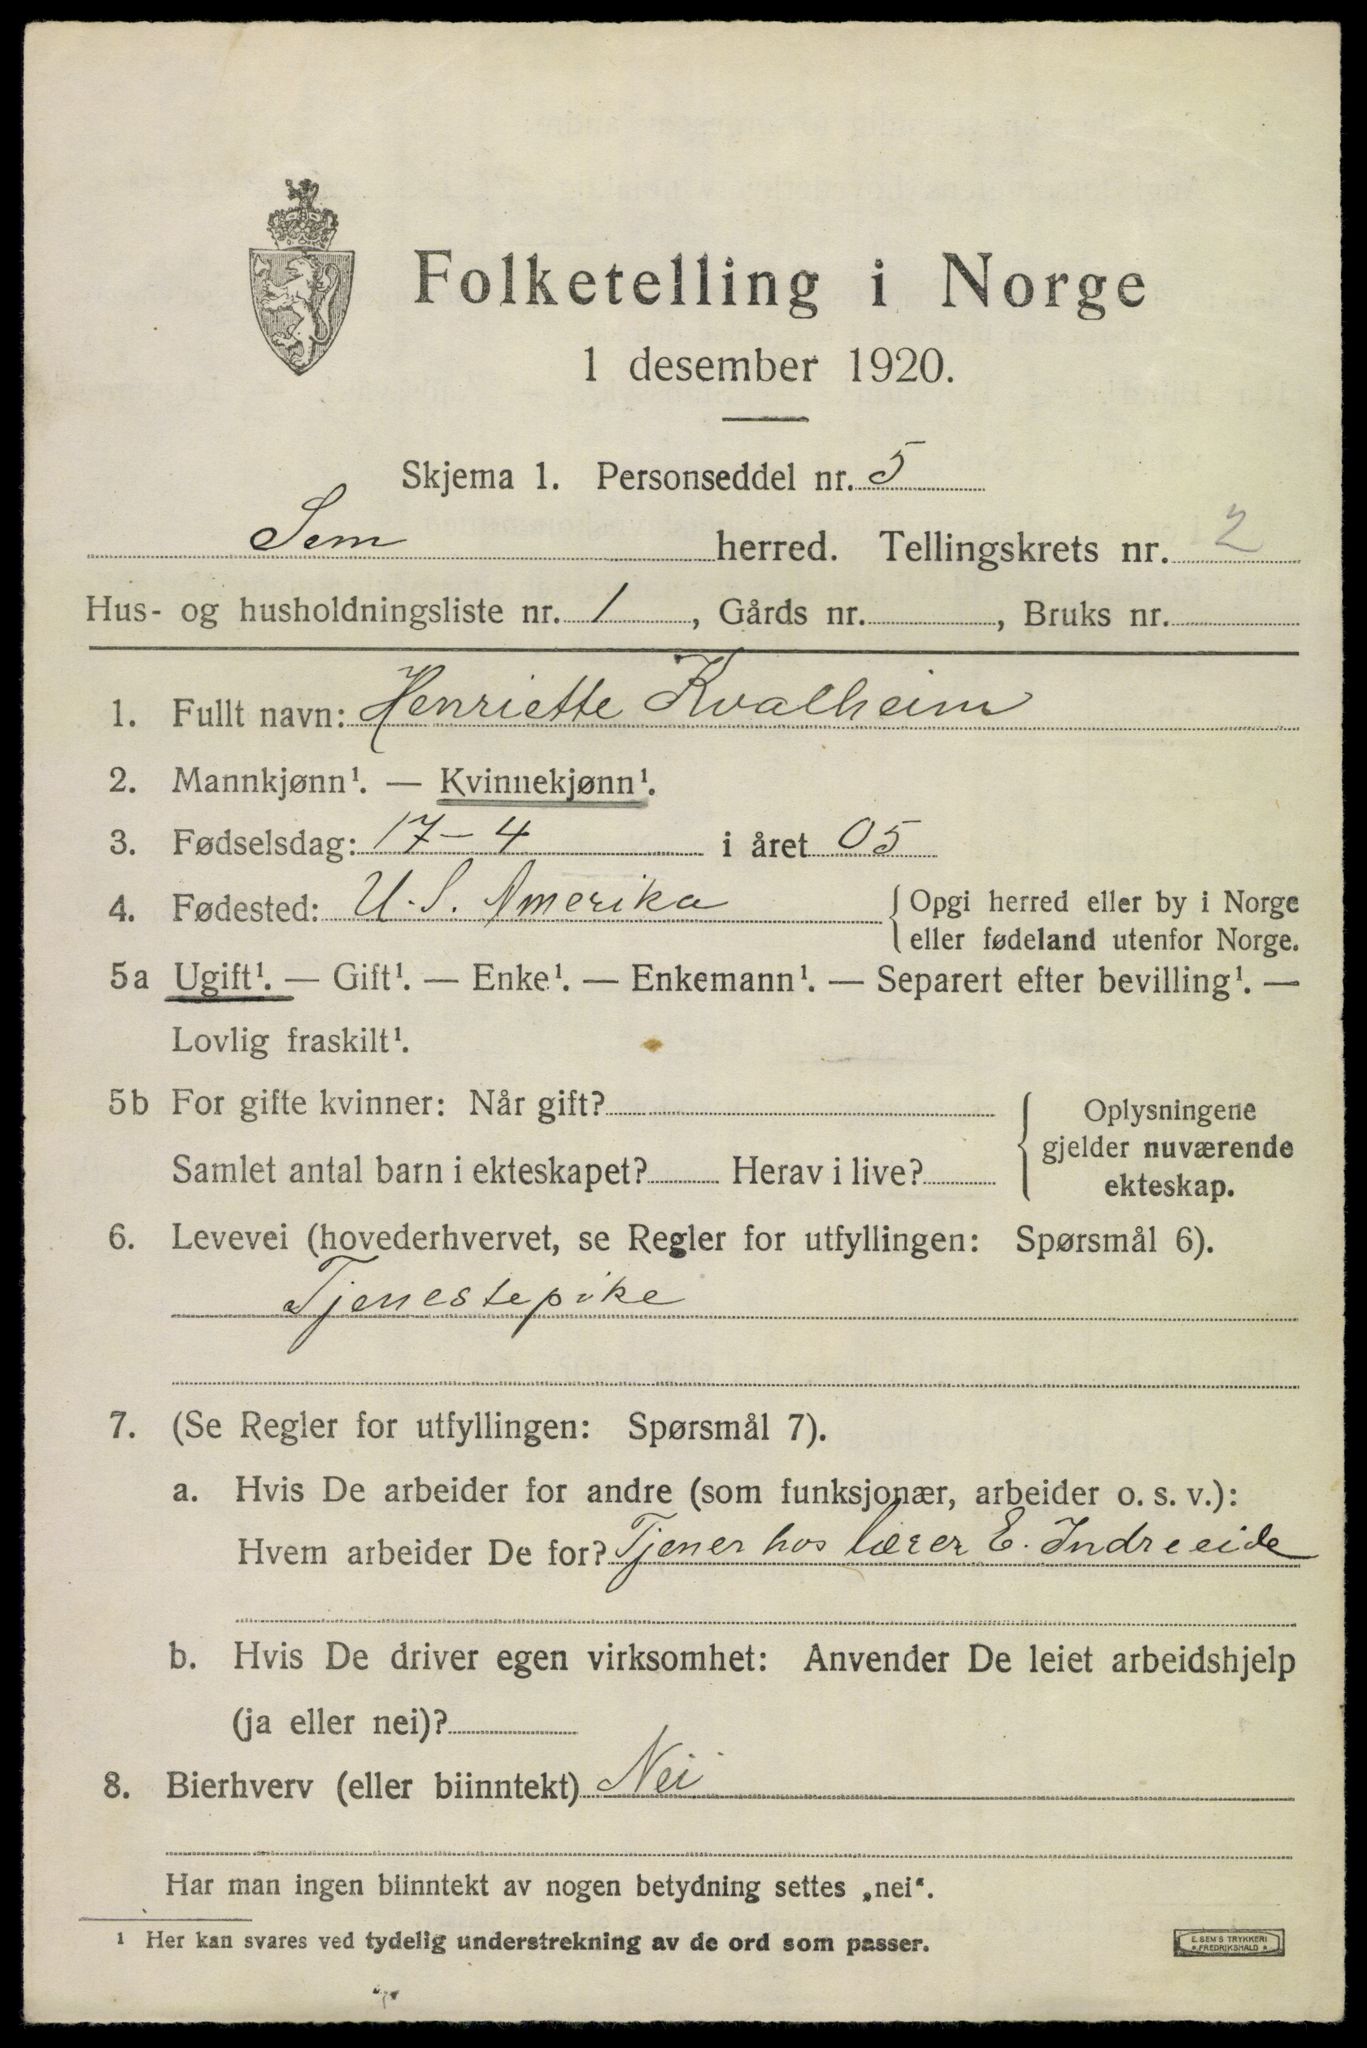 Folketelling i Norge
1 desember 1920.
Skjema 1. Personseddel nr. 5
Sem herred. Tellingskrets nr. 2
Hus- og husholdningsliste nr. 1, Gårds nr. , Bruks nr.
1. Fullt navn: Henriette Kvalheim
2. Mannkjønn¹. — Kvinnekjønn¹.
3. Fødselsdag: 17-4 i året 05
4. Fødested: U.S. Amerika { Opgi herred eller by i Norge
eller fødeland utenfor Norge.
5a Ugift¹. — Gift¹. — Enke¹. — Enkemann¹. — Separert efter bevilling¹. —
Lovlig fraskilt¹.
5b For gifte kvinner: Når gift? { Oplysningene
gjelder nuværende
Samlet antal barn i ekteskapet? Herav i live? ekteskap.
6. Levevei (hovederhvervet, se Regler for utfyllingen: Spørsmål 6).
Tjenestepike
7. (Se Regler for utfyllingen: Spørsmål 7).
a. Hvis De arbeider for andre (som funksjonær, arbeider o. s. v.):
Hvem arbeider De for? Tjener hos lærer E. Indreeide
b. Hvis De driver egen virksomhet: Anvender De leiet arbeidshjelp
(ja eller nei)?
8. Bierhverv (eller biinntekt) Nei
Har man ingen biinntekt av nogen betydning settes „nei“.
¹ Her kan svares ved tydelig understrekning av de ord som passer.
E. SEM'S TRYKKERI
FREDRIKSHALD